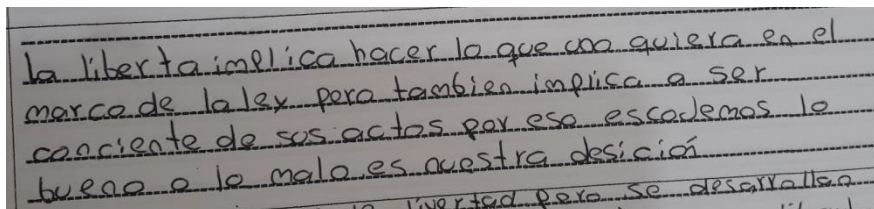 la liberta implica hacer lo que uno quiera en el
marco de la ley pero tambien implica a ser
conciente de sus actos por eso escodemos lo
bueno o lo malo es nuestra desición
livertad pero se desarrollan